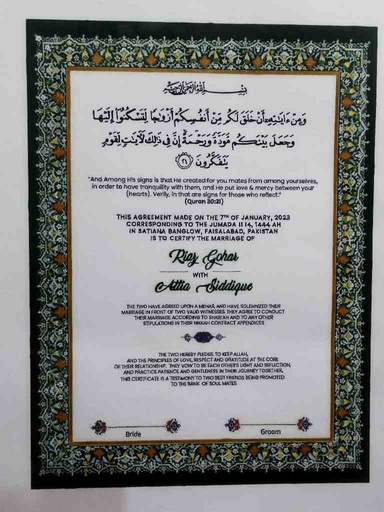 بسم الله الرحمن الرحيم
وَمِنْ ءَايَٰتِهِۦٓ أَنْ خَلَقَ لَكُم مِّنْ أَنفُسِكُمْ أَزْوَٰجًا لِّتَسْكُنُوٓا۟ إِلَيْهَا
وَجَعَلَ بَيْنَكُم مَّوَدَّةً وَرَحْمَةً إِنَّ فِى ذَٰلِكَ لَءَايَٰتٍ لِّقَوْمٍ
يَتَفَكَّرُونَ ٢١
"And Among His signs is that He created for you mates from among yourselves,
in order to have tranquility with them, and He put love & mercy between your
(hearts). Verily, in that are signs for those who reflect."
(Quran 30:21)
THIS AGREEMENT MADE ON THE 7TH OF JANUARY, 2023
CORRESPONDING TO THE JUMADA II 14, 1444 AH
IN SATIANA BANGLOW, FAISALABAD, PAKISTAN
IS TO CERTIFY THE MARRIAGE OF
Riaz Gohar
WITH
Attia Siddique
THE TWO HAVE AGREED UPON A MEHAR, AND HAVE SOLEMNIZED THEIR
MARRIAGE IN FRONT OF TWO VALID WITNESSES. THEY AGREE TO CONDUCT
THEIR MARRIAGE ACCORDING TO SHARIAH AND TO ANY OTHER
STIPULATIONS IN THEIR NIKKAH CONTRACT APPENDICES
THE TWO HEREBY PLEDGE TO KEEP ALLAH,
AND THE PRINCIPLES OF LOVE, RESPECT AND GRATITUDE AT THE CORE
OF THEIR RELATIONSHIP. THEY VOW TO BE EACH OTHER'S LIGHT AND REFLECTION,
AND PRACTICE PATIENCE AND GENTLENESS IN THEIR JOURNEY TOGETHER.
THIS CERTIFICATE IS A TESTIMONY TO TWO BEST FRIENDS BEING PROMOTED
TO THE RANK OF SOUL MATES
Bride Groom